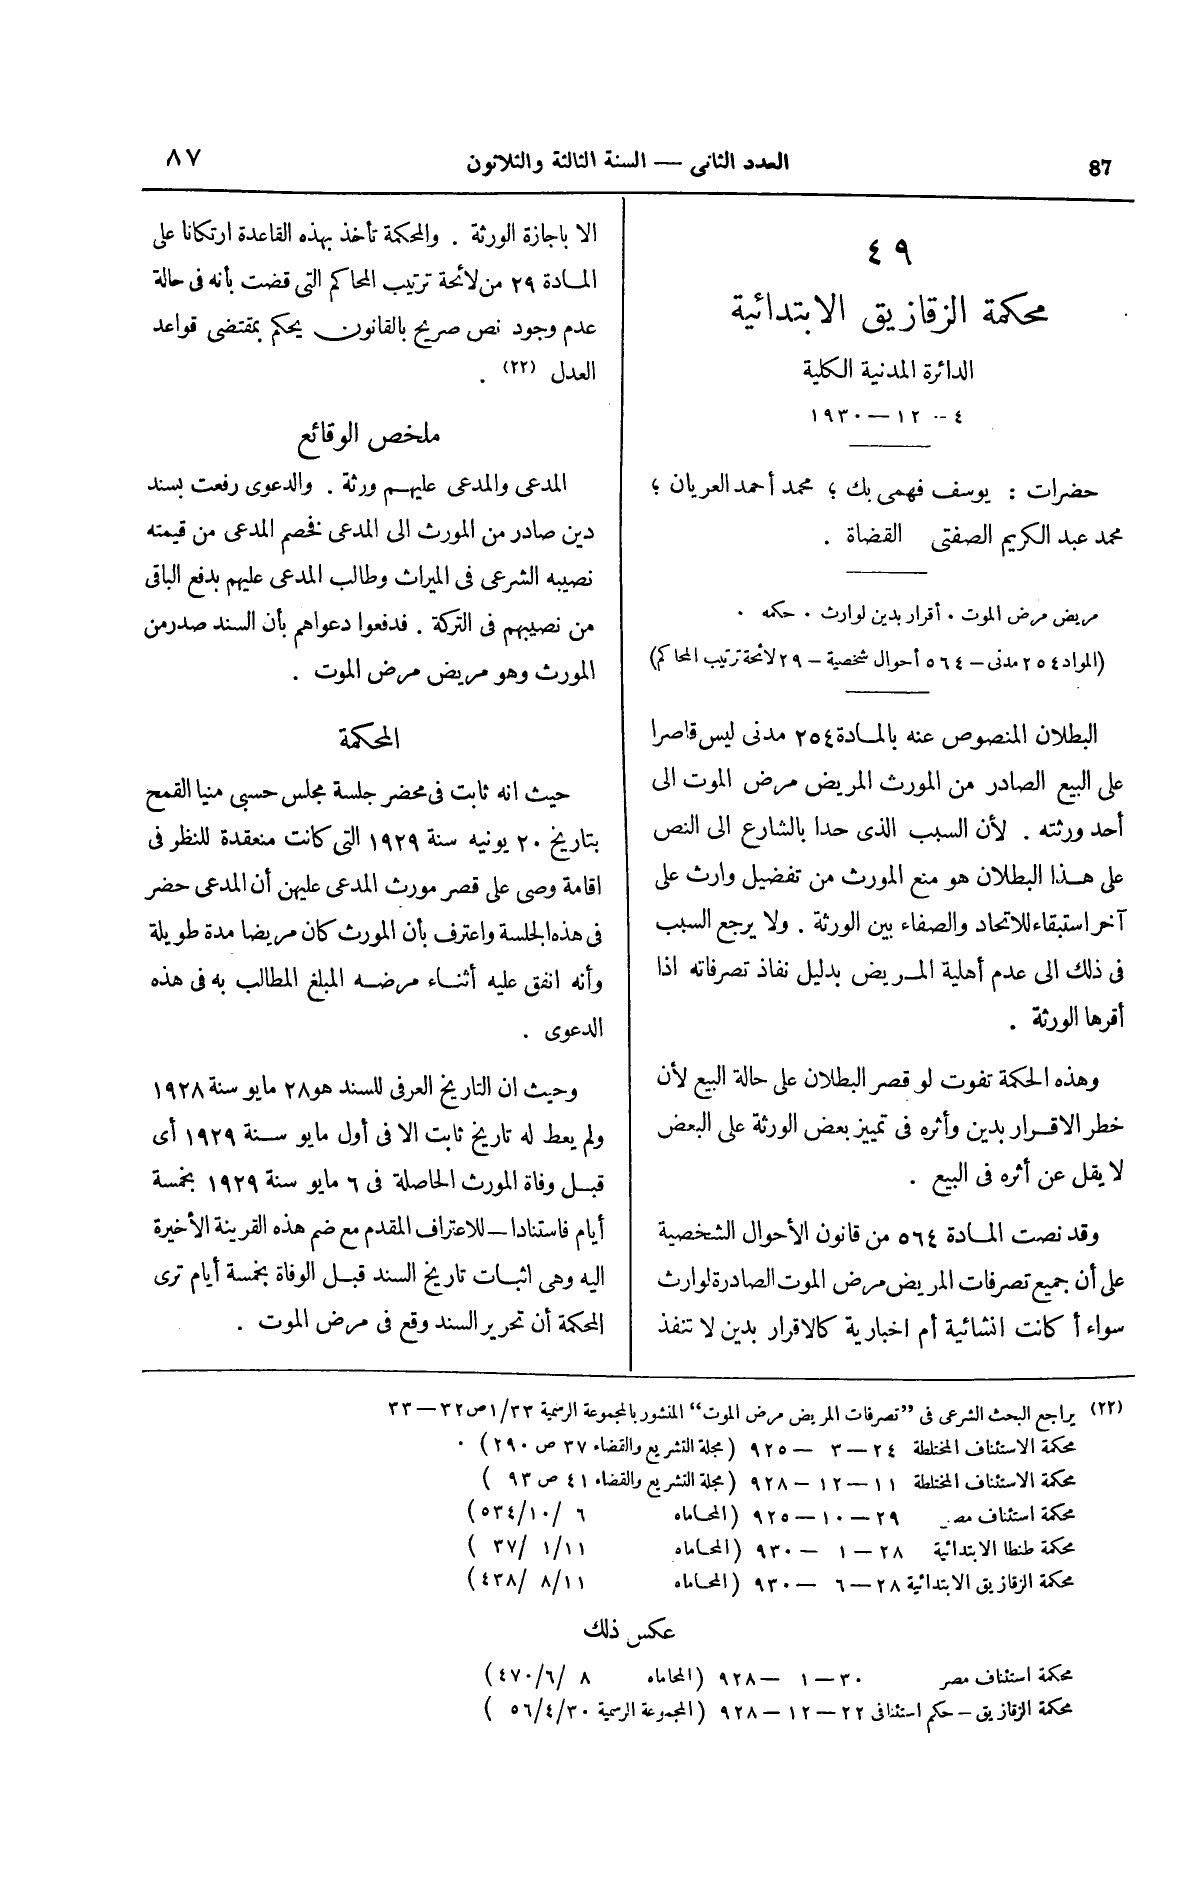 87
العدد الثانى — السنة الثالثة والثلاثون
٨٧
٤٩
محكمة الزقازيق الابتدائية
الدائرة المدنية الكلية
٤ -- ١٢ — ١٩٣٠
حضرات : يوسف فهمى بك ؛ محمد أحمد العريان ؛
محمد عبد الكريم الصفتى القضاة .
مريض مرض الموت . أقرار بدين لوارث . حكمه .
(المواد ٢٥٤ مدنى – ٥٦٤ أحوال شخصية – ٢٩ لائحة ترتيب المحاكم)
البطلان المنصوص عنه بالمادة ٢٥٤ مدنى ليس قاصرا
على البيع الصادر من المورث المريض مرض الموت الى
أحد ورثته . لأن السبب الذى حدا بالشارع الى النص
على هذا البطلان هو منع المورث من تفضيل وارث على
آخر استبقاء للاتحاد والصفاء بين الورثة . ولا يرجع السبب
فى ذلك الى عدم أهلية المريض بدليل نفاذ تصرفاته اذا
أقرها الورثة .
وهذه الحكمة تفوت لو قصر البطلان على حالة البيع لأن
خطر الاقرار بدين وأثره فى تمييز بعض الورثة على البعض
لا يقل عن أثره فى البيع .
وقد نصت المادة ٥٦٤ من قانون الأحوال الشخصية
على أن جميع تصرفات المريض مرض الموت الصادرة لوارث
سواء أ كانت انشائية أم اخبارية كالاقرار بدين لا تنفذ
الا باجازة الورثة . والمحكمة تأخذ بهذه القاعدة ارتكانا على
المادة ٢٩ من لائحة ترتيب المحاكم التى قضت بأنه فى حالة
عدم وجود نص صريح بالقانون يحكم بمقتضى قواعد
العدل (٢٢) .
ملخص الوقائع
المدعى والمدعى عليهم ورثة . والدعوى رفعت بسند
دين صادر من المورث الى المدعى فخصم المدعى من قيمته
نصيبه الشرعى فى الميراث وطالب المدعى عليهم بدفع الباقى
من نصيبهم فى التركة . فدفعوا دعواهم بأن السند صدر من
المورث وهو مريض مرض الموت .
المحكمة
حيث انه ثابت فى محضر جلسة مجلس حسبى منيا القمح
بتاريخ ٢٠ يونيه سنة ١٩٢٩ التى كانت منعقدة للنظر فى
اقامة وصى على قصر مورث المدعى عليهن أن المدعى حضر
فى هذه الجلسة واعترف بأن المورث كان مريضا مدة طويلة
وأنه انفق عليه أثناء مرضه المبلغ المطالب به فى هذه
الدعوى .
وحيث ان التاريخ العرفى للسند هو ٢٨ مايو سنة ١٩٢٨
ولم يعط له تاريخ ثابت الا فى أول مايو سنة ١٩٢٩ أى
قبل وفاة المورث الحاصلة فى ٦ مايو سنة ١٩٢٩ بخمسة
أيام فاستنادا — للاعتراف المقدم مع ضم هذه القرينة الأخيرة
اليه وهى اثبات تاريخ السند قبل الوفاة بخمسة أيام ترى
المحكمة أن تحرير السند وقع فى مرض الموت .
(٢٢) يراجع البحث الشرعى فى "تصرفات المريض مرض الموت" المنشور بالمجموعة الرسمية ١/٣٣ ص ٣٢ — ٣٣
محكمة الاستئناف المختلطة ٢٤ — ٣ — ٩٢٥ (مجلة التشريع والقضاء ٣٧ ص ٢٩٠) .
محكمة الاستئناف المختلطة ١١ — ١٢ — ٩٢٨ (مجلة التشريع والقضاء ٤١ ص ٩٣ )
محكمة استئناف مصر ٢٩ — ١٠ — ٩٢٥ (المحاماه ٦ /١٠/٥٣٤)
محكمة طنطا الابتدائية ٢٨ — ١ — ٩٣٠ (المحاماه ١١/١ /٣٧ )
محكمة الزقازيق الابتدائية ٢٨ — ٦ — ٩٣٠ (المحاماه ١١/٨ /٤٣٨)
عكس ذلك
محكمة استئناف مصر ٣٠ — ١ — ٩٢٨ (المحاماه ٨ /٦/٤٧٠)
محكمة الزقازيق – حكم استئنافى ٢٢ — ١٢ — ٩٢٨ (المجموعة الرسمية ٣٠/٤/٥٦ )